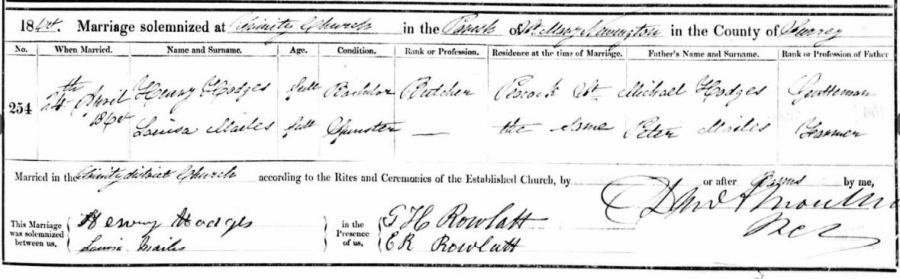 18 Marriage solemnized at Trinity Church in the Parish of St. Mary Newington in the County of Surrey
No. When Married. Name and Surname. Age. Condition. Rank or Profession. Residence at the time of Marriage. Father's Name and Surname. Rank or Profession of Father
254 24th April Henry Hodges full Bachelor Butcher Peacock St. Michael Hodges Gentleman
Louisa Mailes full Spinster — the same Peter Mailes Farmer
Married in the Trinity district Church according to the Rites and Ceremonies of the Established Church, by or after Banns by me,
This Marriage was solemnized between us, Henry Hodges in the Presence of us, G H Rowlatt
Louisa Mailes C R Rowlatt